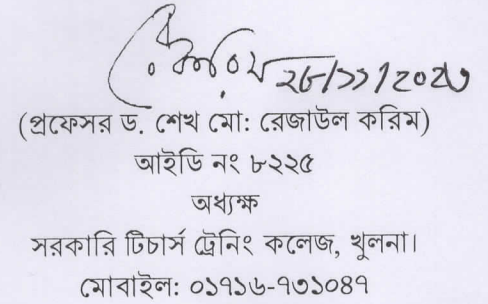 রে করিম ২৮/১১/২০২৩
(প্রফেসর ড. শেখ মো: রেজাউল করিম)
আইডি নং ৮২২৫
অধ্যক্ষ
সরকারি টিচার্স ট্রেনিং কলেজ, খুলনা।
মোবাইল: ০১৭১৬-৭৩১০৪৭